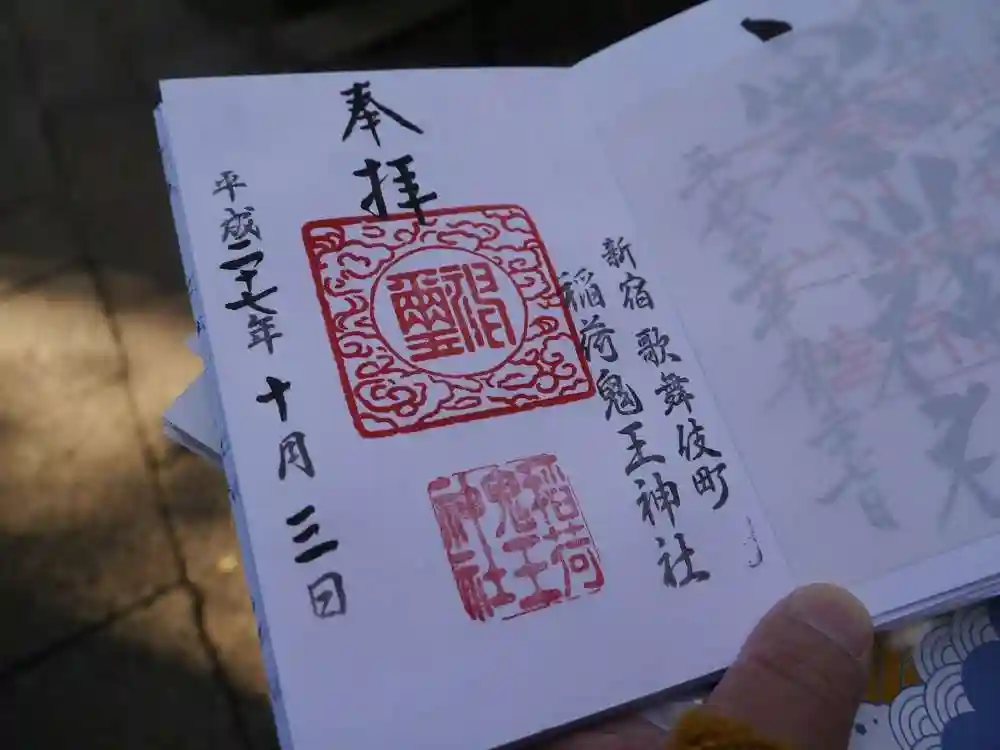 奉拝
新宿歌舞伎町
稲荷鬼王神社
稲荷
鬼王
神社
平成二十七年十月三日